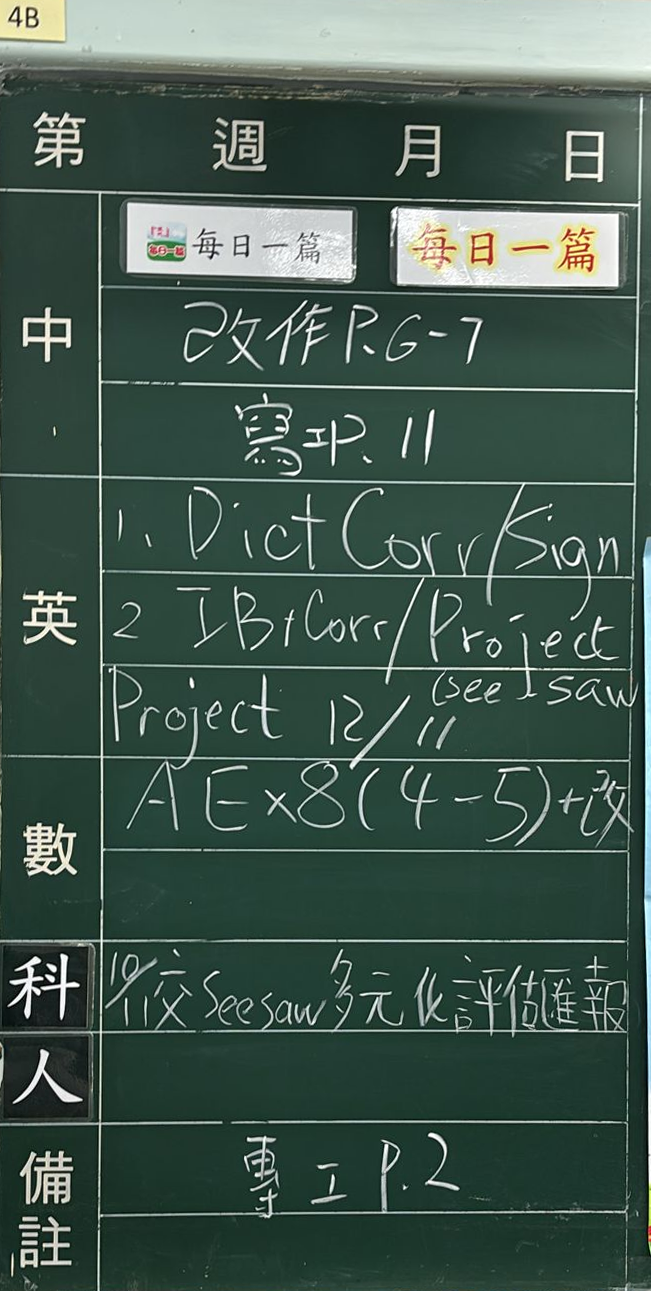 4B
第 週 月 日
每日一篇 每日一篇
中
改作P.6-7
寫工P.11
英
1. Dict Corr/Sign
2 IB+Corr/Project
(see-saw
Project 12/11
數
AE×8(4-5)+改
科
10/11交Seesaw多元化評估匯報
人
備註
專工P.2